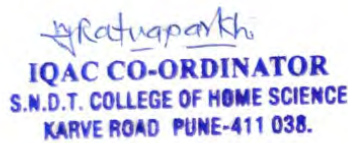 Ratnaparkh
IQAC CO-ORDINATOR
S.N.D.T. COLLEGE OF HOME SCIENCE
KARVE ROAD PUNE-411 038.